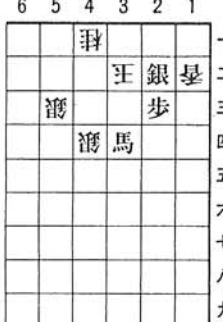 6 5 4 3 2 1
桂 一
玉 銀 香 二
銀 歩 三
銀 馬 四
五
六
七
八
九